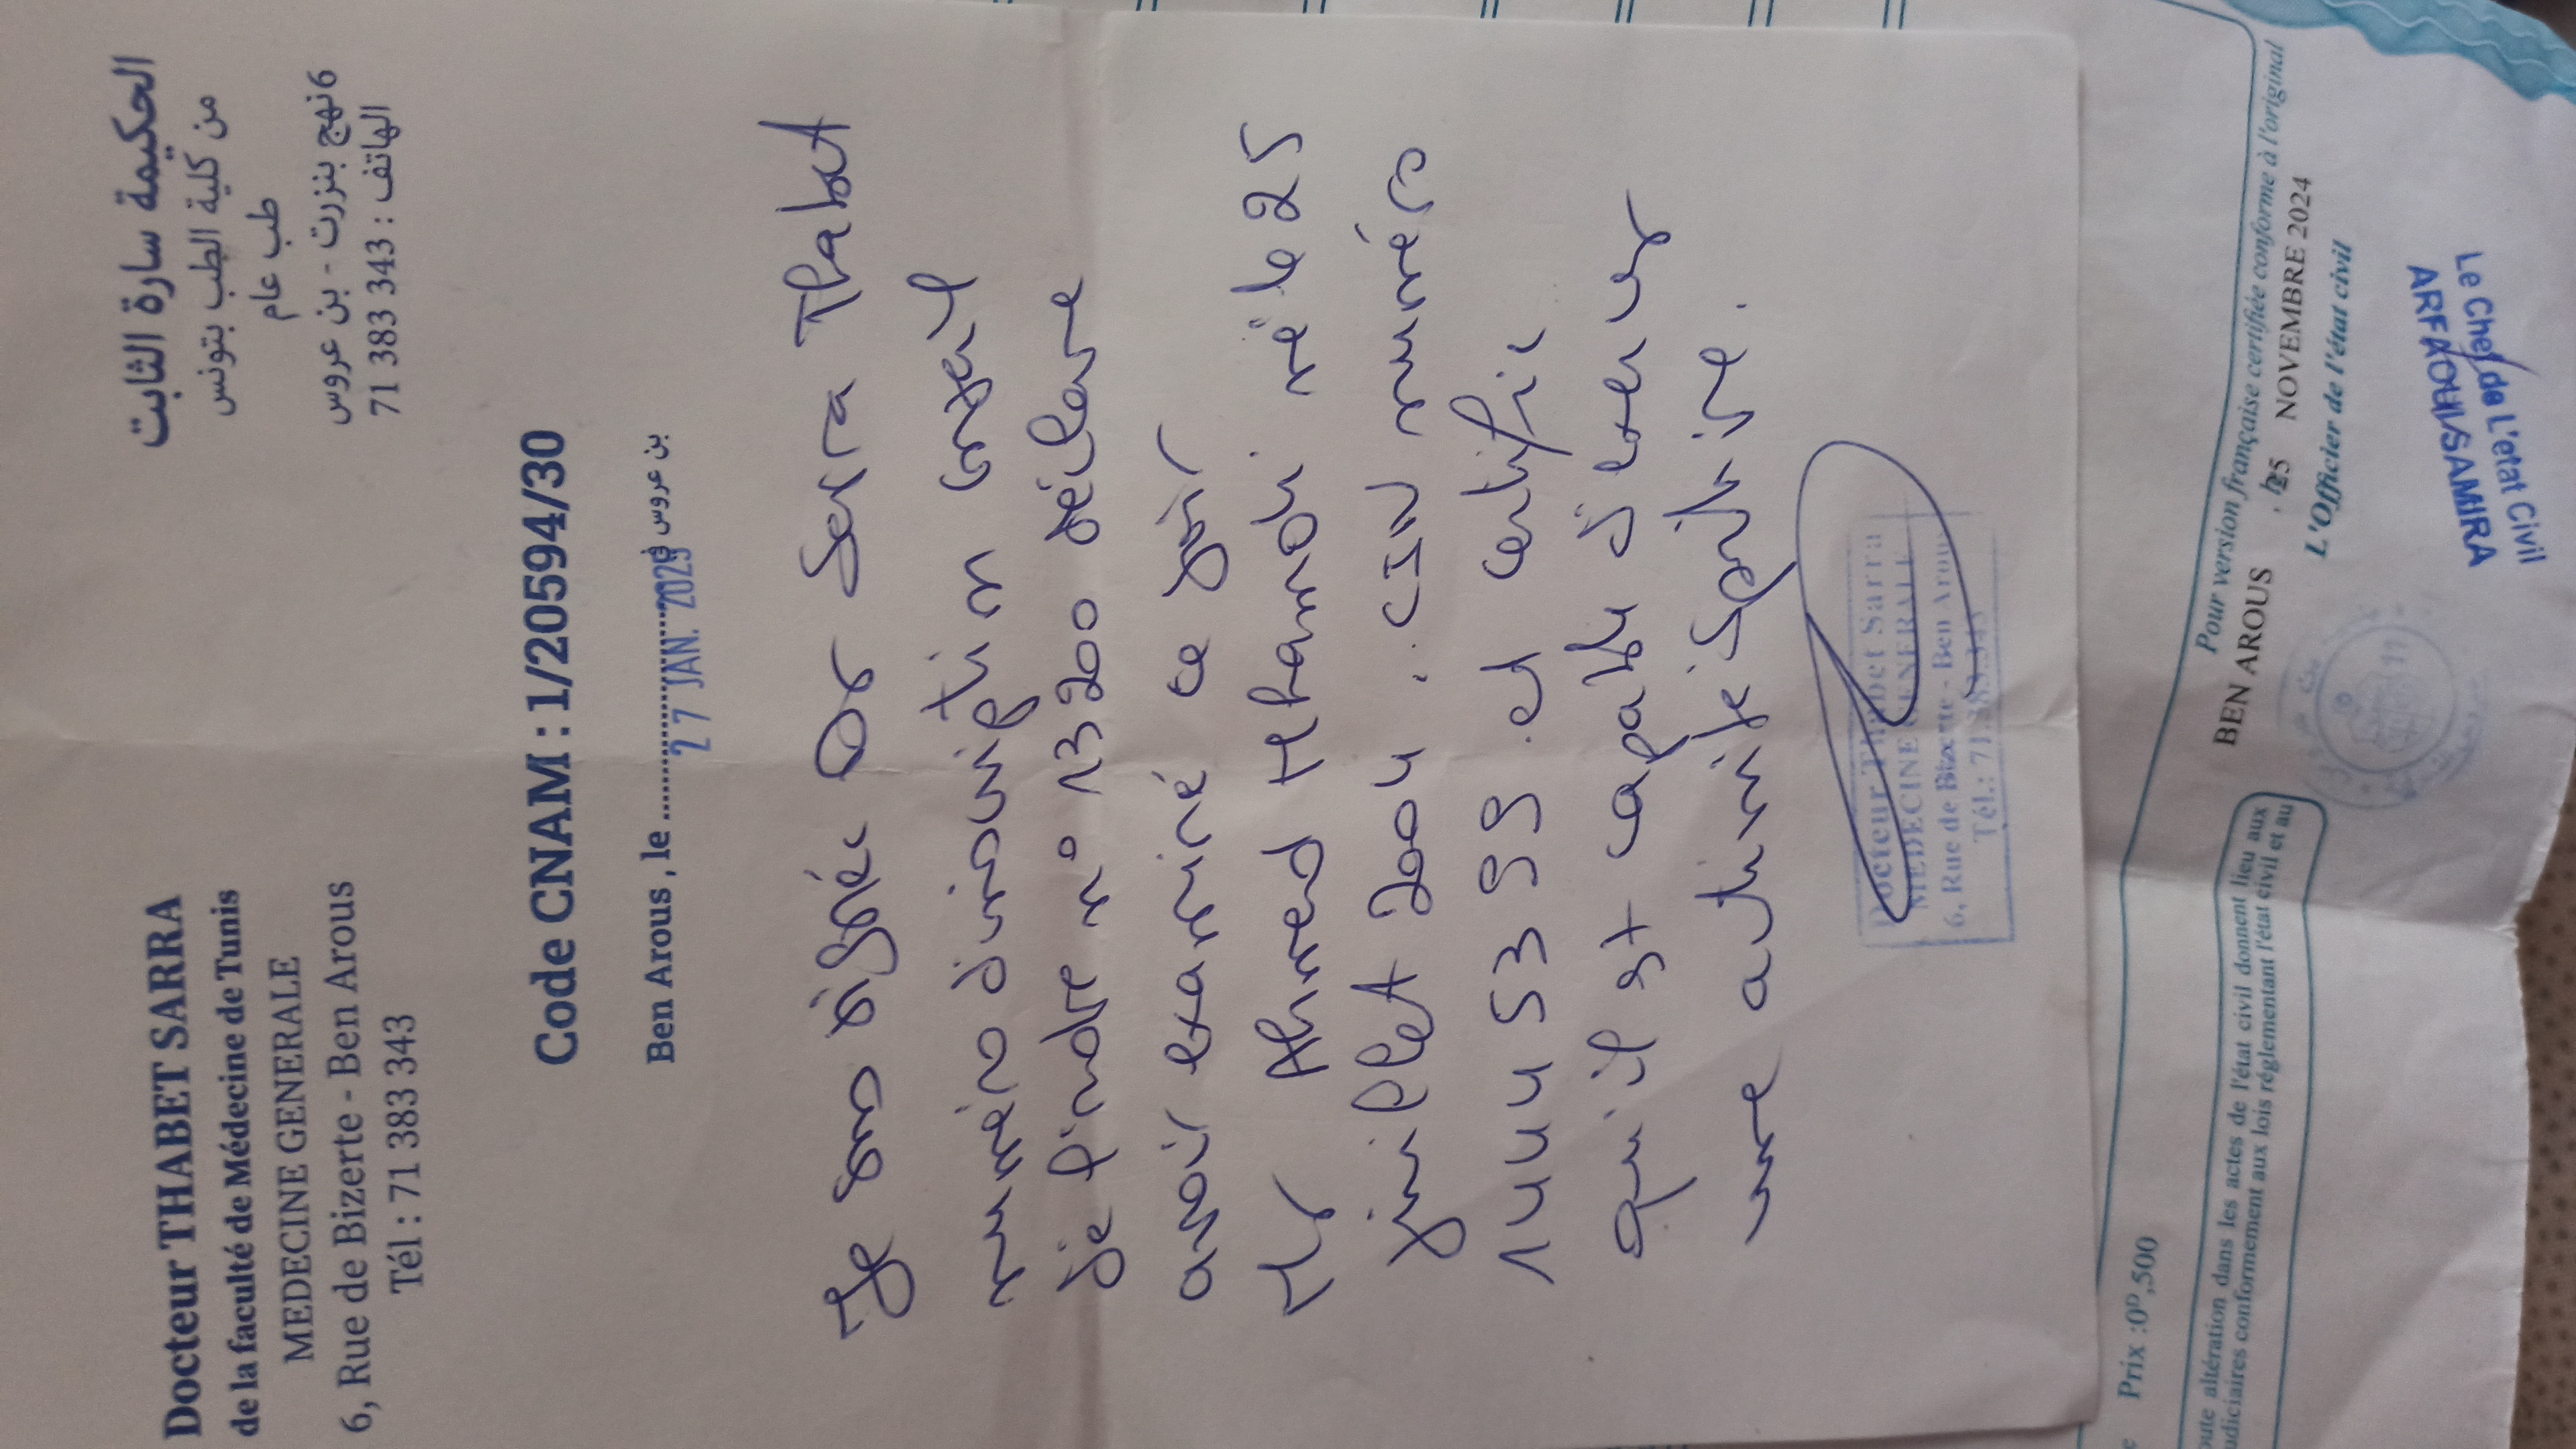 Docteur THABET SARRA
de la faculté de Médecine de Tunis
MEDECINE GENERALE
6, Rue de Bizerte - Ben Arous
Tél : 71 383 343
الحكيمة سارة الثابت
من كلية الطب بتونس
طب عام
6 نهج بنزرت - بن عروس
الهاتف : 343 383 71
Code CNAM : 1/20594/30
Ben Arous , le .............................. بن عروس
27 JAN. 2025
Je sous signée Dr Sarra Thabet
numéro d'inscription conseil
de l'ordre n° 13200 déclare
avoir examiné ce jour
Mr Ahmed Hhamdi né le 25
juillet 2004 . CIN numéro
14445399 et certifie
qu'il est capable d'exercer
une activité sportive.
Docteur Thabet Sarra
MEDECINE GENERALE
6, Rue de Bizerte - Ben Arous
Tél.: 71.383.343
Prix :0ᴰ,500
oute altération dans les actes de l'état civil donnent lieu aux
udiciaires conformement aux lois réglementant l'état civil et au
Pour version française certifiée conforme à l'original
BEN AROUS , le 25 NOVEMBRE 2024
L'Officier de l'état civil
Le Chef de L'etat Civil
ARFAOUI SAMIRA